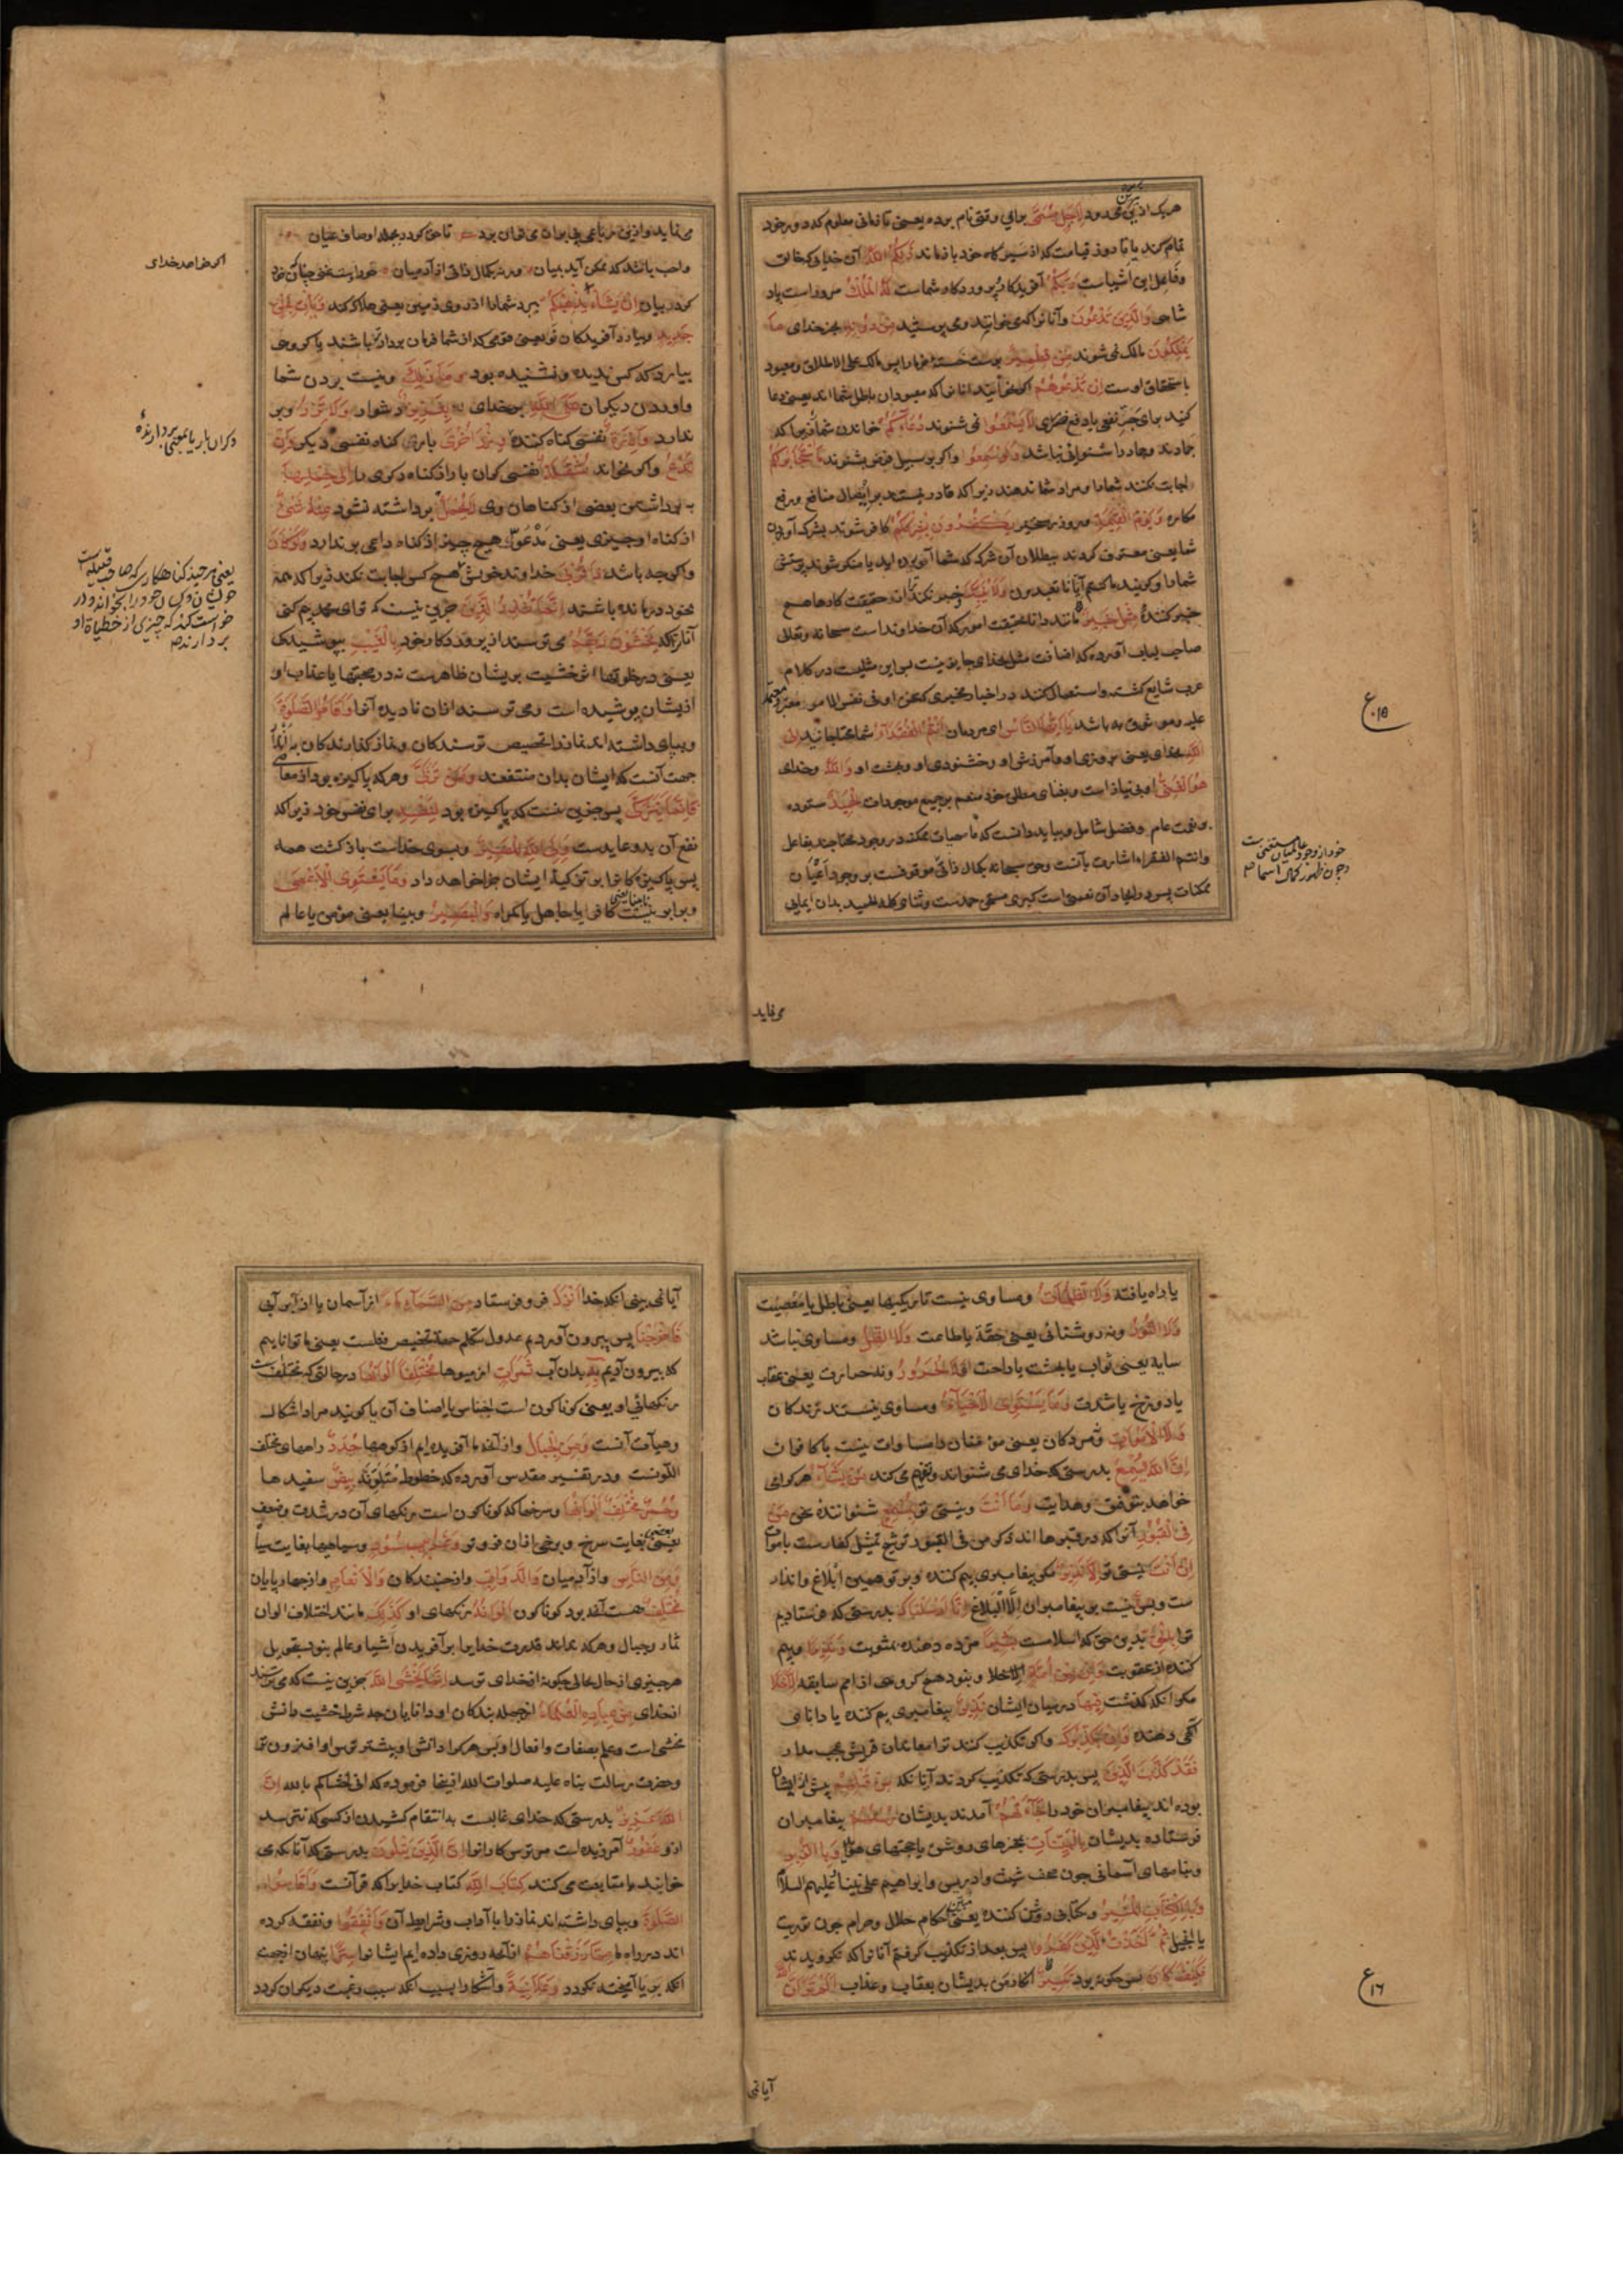 هریک ازین محدود لِاَجَلٍ مُسَمًّی برای وقتی نام برده یعنی تا زمانی معلوم که دور خود
تمام کند یا تا روز قیامت که از سیر گاه خود بازماند ذٰلِکُمُ اللّٰهُ آن خدای که خالق
وفاعل این اشیاست رَبُّکُمْ آفریدگار پروردگار شماست لَهُ الْمُلْکُ مروراست پاد
شاهی وَالَّذِیْنَ تَدْعُوْنَ وآنانرا که می خوانید ومی پرستید مِنْ دُوْنِهٖ بجز خدای مَا
یَمْلِکُوْنَ مالک نمی شوند مِنْ قِطْمِیْرٍ پوست خسته خرما را پس مالک علی الاطلاق ومعبود
باستحقاق اوست اِنْ تَدْعُوْهُمْ اگر خوانید آنانرا که معبودان باطل شما اند یعنی دعا
کنید برای جرّ نفعی یا دفع ضرری لَا یَسْمَعُوْا نمی شنوند دُعَآءَکُمْ خواندن شما زیرا که
جمادند وجماد را شنوایی نباشد وَلَوْ سَمِعُوْا واگر بر سبیل فرض بشنوند مَا اسْتَجَابُوْا لَکُمْ
اجابت نکنند شما را ومراد شما ندهند زیرا که قادر نیستند بر ایصال منافع ورفع
مکاره وَیَوْمَ الْقِیٰمَةِ وروز رستخیز یَکْفُرُوْنَ بِشِرْکِکُمْ کافر شوند بشرک آوردن
شما یعنی معترف گردند ببطلان آن شرک که شما آورده اید یا منکر شوند پرستش
شما را وگویند ما کنتم ایانا تعبدون وَلَا یُنَبِّئُکَ وخبر نکند ترا از حقیقت کارها هیچ
خبر کنندۀ مِثْلُ خَبِیْرٍ مانند دانا بحقیقت امور که آن خداوند است سبحانه وتعالی
صاحب لباب آورده که اضافت مثل بخدای جایز نیست پس این مثلیست در کلام
عرب شایع گشته واستعمال کنند در اخبار مخبری که سخن او فی نفس الامر معتبر ومعتمد
علیه وموثوق به باشد یٰاَیُّهَا النَّاسُ ای مردمان اَنْتُمُ الْفُقَرَآءُ شما محتاجانید اِلَی
اللّٰهِ بخدای یعنی بروزی او وآمرزش او وخشنودی او وبهشت او وَاللّٰهُ وخدای
هُوَ الْغَنِیُّ او بی نیاز است وبغنای مطلق خود منعم بر جمیع موجودات الْحَمِیْدُ ستوده
بنعمت عام وفضل شامل وبباید دانست که ماهیات ممکنه در وجود محتاجند بفاعل
وانتم الفقراء اشارت بآنست وحق سبحانه بکمال ذاتی موقوف نیست بر وجود اعیان
ممکنات پس
می نماید
ع ۱۵
خود از وجود عالمیان مستغنی است
وچون ظهور کمال اسما
می نماید وازین رباعی پی بران می توان برد تا حق گردد بجمله اوصاف عیان
واجب باشد که ممکن آید بمیان ورنه بکمال ذاتی از آدمیان فرد است وغنی چنانکه خود
کرد بیان اِنْ یَّشَاْ یُذْهِبْکُمْ ببرد شما را از روی زمین یعنی هلاک کند وَیَاْتِ بِخَلْقٍ
جَدِیْدٍ وبیارد آفریدگان نو یعنی قومی که از شما فرمان بردارتر باشند یا گروهی
بیارد که کس ندیده ونشنیده بود وَمَا ذٰلِکَ ونیست بردن شما
وآوردن دیگران عَلَی اللّٰهِ بر خدای بِعَزِیْزٍ دشوار وَلَا تَزِرُ وبر
ندارد وَازِرَةٌ نفسی گناه کننده وِّزْرَ اُخْرٰی بار گناه نفسی دیگر وَاِنْ
تَدْعُ واگر بخواند مُثْقَلَةٌ نفسی گران بار از گناه دیگری را اِلٰی حِمْلِهَا
به برداشتن بعضی از گناهان وی لَا یُحْمَلْ برداشته نشود مِنْهُ شَیْءٌ
از گناه او چیزی یعنی مدعوّ هیچ چیز از گناه داعی بر ندارد وَّلَوْ کَانَ
واگرچه باشد ذَا قُرْبٰی خداوند خویشی هیچ کس اجابت نکند زیرا که همه
بخود درمانده باشند اِنَّمَا تُنْذِرُ الَّذِیْنَ جزین نیست که تو ای محمد بیم کنی
آنانرا که یَخْشَوْنَ رَبَّهُمْ می ترسند از پروردگار خود بِالْغَیْبِ بپوشیدگی
یعنی در خلوتها اثر خشیت بریشان ظاهرست نه در صحبتها یا عذاب او
ازیشان پوشیده است ومی ترسند ازان نادیده آنرا وَاَقَامُوا الصَّلٰوةَ
وبپای داشته اند نماز را تخصیص ترسندگان ونماز گذارندگان به انذار
جهت آنست که ایشان بدان منتفعند وَمَنْ تَزَکّٰی وهر که پاکیزه بود از معاصی
فَاِنَّمَا یَتَزَکّٰی پس جزین نیست که پاکیزه بود لِنَفْسِهٖ برای نفس خود زیرا که
نفع آن بدو عاید است وَاِلَی اللّٰهِ الْمَصِیْرُ وبسوی خداست بازگشت همه
پس پاکیزگانرا بر تزکیۀ ایشان جزا خواهد داد وَمَا یَسْتَوِی الْاَعْمٰی
وبرابر نیست نابینا یعنی کافر یا جاهل یا گمراه وَالْبَصِیْرُ وبینا یعنی مؤمن یا عالم
اگر خواهد خدای
یعنی هر چند گناهکار
یا راه یافته وَلَا الظُّلُمَاتُ ومساوی نیست تاریکیها یعنی باطل یا معصیت
وَلَا النُّوْرُ ونه روشنائی یعنی حقّ یا طاعت وَلَا الظِّلُّ ومساوی نباشد
سایه یعنی ثواب یا بهشت یا راحت وَلَا الْحَرُوْرُ ونه حرارت یعنی عقاب
یا دوزخ یا شدت وَمَا یَسْتَوِی الْاَحْیَآءُ ومساوی نیستند زندگان
وَلَا الْاَمْوَاتُ ومردگان یعنی مؤمنان را مساوات نیست با کافران
اِنَّ اللّٰهَ یُسْمِعُ بدرستی که خدای می شنواند وتفهیم می کند مَنْ یَّشَآءُ هر کرا می
خواهد بتوفیق وهدایت وَمَا اَنْتَ ونیستی تو بِمُسْمِعٍ شنوانندۀ سخن مَنْ
فِی الْقُبُوْرِ آنرا که در قبرها اند ذکر من فی القبور ترشیح تمثیل کفارست باموات
اِنْ اَنْتَ نیستی تو اِلَّا نَذِیْرٌ مگر پیغامبری بیم کننده وبر تو همین ابلاغ وانذار
ست وبس نیست بر پیغامبران الا البلاغ اِنَّا اَرْسَلْنٰکَ بدرستی که فرستادیم
ترا بِالْحَقِّ بدین حق که اسلامست بَشِیْرًا مژده دهنده بمثوبت وَنَذِیْرًا وبیم
کننده از عقوبت وَاِنْ مِّنْ اُمَّةٍ اِلَّا خَلَا ونبود هیچ گروهی از امم سابقه اِلَّا خَلَا
مگر آنکه گذشت فِیْهَا در میان ایشان نَذِیْرٌ پیغامبری بیم کننده یا دانائی
آگهی دهنده وَاِنْ یُّکَذِّبُوْکَ واگر تکذیب کنند ترا معاندان قریش عجب مدار
فَقَدْ کَذَّبَ الَّذِیْنَ پس بدرستی که تکذیب کردند آنانکه مِنْ قَبْلِهِمْ پیش از ایشان
بوده اند پیغامبران خود را جَآءَتْهُمْ آمدند بدیشان رُسُلُهُمْ پیغامبران
فرستاده بدیشان بِالْبَیِّنَاتِ بمعجزهای روشن یا حجتهای هویدا وَبِالزُّبُرِ
وبنامهای آسمانی چون صحف شیث وادریس وابراهیم علی نبینا وعلیهم السلام
وَبِالْکِتَابِ الْمُنِیْرِ وبکتابی روشن کننده یعنی مبین احکام حلال وحرام چون توریت
یا انجیل ثُمَّ اَخَذْتُ الَّذِیْنَ کَفَرُوْا پس بعد از تکذیب گرفتم آنانرا که نگرویدند
فَکَیْفَ کَانَ پس چگونه بود نَکِیْرِ انکار من بدیشان بعقاب وعذاب اَلَمْ تَرَ اَنَّ اللّٰهَ
آیا نمی
ع ۱۶
آیا نمی بینی آنکه خدا اَنْزَلَ فرو فرستاد مِنَ السَّمَآءِ مَآءً از آسمان یا از ابر آبی
فَاَخْرَجْنَا پس بیرون آوردیم عدول بتکلم جهت تخصیص فعلست یعنی ما توانائیم
که بیرون آریم بِهٖ بدان آب ثَمَرَاتٍ از میوها مُخْتَلِفًا اَلْوَانُهَا در حالتی که مختلف است
رنگهای او یعنی گوناگون است اجناس یا اصناف آن یا گویند مراد اشکال
وهیآت آنست وَمِنَ الْجِبَالِ واز آنچه ما آفریده ایم از کوهها جُدَدٌ راههای مختلف
اللّونست ودر تفسیر مقدس آورده که خطوط متلونه بِیْضٌ سفیدها
وَّحُمْرٌ مُّخْتَلِفٌ اَلْوَانُهَا وسرخها که گوناگون است رنگهای آن در شدت وضعف
یعنی بعضی بغایت سرخ وبرخی ازان فروتر وَغَرَابِیْبُ سُوْدٌ وسیاهیها بغایت سیاه
وَمِنَ النَّاسِ واز آدمیان وَالدَّوَآبِّ واز جنبندگان وَالْاَنْعَامِ واز چهارپایان
مُخْتَلِفٌ هست آنچه بود گوناگون اَلْوَانُهٗ رنگهای او کَذٰلِکَ مانند اختلاف الوان
ثمار وجبال وهر که نداند قدرت خدایرا بر آفریدن اشیا وعالم بنود بتحویل
هر چیزی از حال بحالی چگونه از خدای ترسد اِنَّمَا یَخْشَی اللّٰهَ جزین نیست که می ترسند
از خدای مِنْ عِبَادِهِ الْعُلَمَآءُ از جمله بندگان او دانایان چه شرط خشیت دانش
مخشی است وعلم بصفات وافعال او پس هر کرا دانش او بیشتر ترس او افزون تر
وحضرت رسالت پناه علیه صلوات الله ازینجا فرموده که انی اخشاکم بالله اِنَّ
اللّٰهَ عَزِیْزٌ بدرستی که خدای غالبست بانتقام کشیدن از کسی که نترسد
ازو غَفُوْرٌ آمرزنده است مر ترس گارانرا اِنَّ الَّذِیْنَ یَتْلُوْنَ بدرستی که آنانکه می
خوانند یا متابعت می کنند کِتَابَ اللّٰهِ کتاب خدایرا که قرآنست وَاَقَامُوا
الصَّلٰوةَ وبپای داشته اند نماز را با آداب وشرایط آن وَاَنْفَقُوْا ونفقه کرده
اند در راه ما مِمَّا رَزَقْنَاهُمْ از آنچه روزی داده ایم ایشانرا سِرًّا پنهان از جهت
آنکه بریا آمیخته نگردد وَّعَلَانِیَةً وآشکارا بسبب آنکه سبب رغبت دیگران گردد